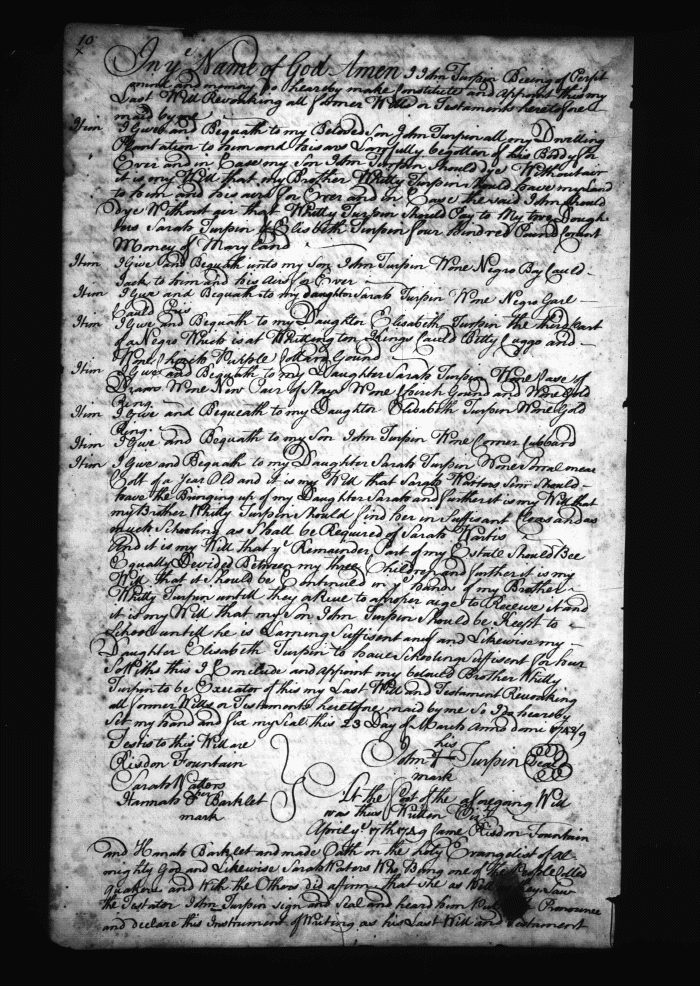 10
x
In ye Name of God Amen I John Turpin Beeing of Perfit
mind and memory Do hereby make Constitute and Appoynt this my
Last Will Revonking all former Wills or Testaments heretofore
maid by me
Itim I Give and Bequath to my Beloved Son John Turpin all my Dwelling
Plantation to him and his ars Lawfully begotten of his Body for
Ever and in Case my Son John Turpin Should Dye Without air
it is my Will that my Brother Whitty Turpin Should have my Land
to him and his aers for Ever and in Case the said John Should
Dye Without aer that Whitty Turpin Should Pay to My tow Dough-
ters Sarah Turpin & Elisbeth Turpin four hundred Pound Corant
Money of Mary Land
Itim I Give and Bequath unto my Son John Turpin Wone Negro Boy Cauld
Jack to him and his Aers for Ever
Itim I Give and Bequath to my daughter Sarah Turpin Wone Negro Garl
Cauld
Itim I Give and Bequath to my Daughter Elisabeth Turpin the third Part
of a Negro Which is at Whittington Kings Cauld Betty Cuggo and
Wone Purpple Gound
Itim I Give and Bequath to my Daughter Sarah Turpin Wone Case of
Draws Wone New Pair of Stays Wone Gound and Wone Gold
Ring
Itim I Give and Bequeath to my Daughter Elisabeth Turpin Wone Gold
Ring
Itim I Give and Bequath to my Son John Turpin Wone Corner Cubbard
Itim I Give and Bequath to my Daughter Sarah Turpin Wone Smal meare
Colt of a Year Old and it is my Will that Sarah Warters Senr Should
have the Bringing up of my Daughter Sarah and further it is my Will that
my Brother Whitty Turpin Should find her in Suffisant Cloes and as
much Schooling as Shall be Required of Sarah Warters
And it is my Will that ye Remainder Part of my Estate Should Bee
Equally Devided Between my three Children and further it is my
Will that it Should be Continued in ye hands of my Brother
Whitty Turpin untill they arive to a proper aege to Receive it and
it is my Will that my Son John Turpin Should be Keept to
School untill he is Larning Suffisent and Likewise my
Daughter Elisabeth Turpin to have Schooling Suffisent for hur
So With this I Conclude and appoint my beloved Brother Whitty
Turpin to be Executor of this my Last Will and Testament Revonking
all former Wills or Testaments heretofore maid by me So I Do hereby
Set my hand and fix my Seal this 23 Day of March Anno dome 1748/9
Testis to this Will are
Risdon Fountain
Sarah Waters
Hannah Barklet
mark
his
John Turpin Seal
mark
At the foot of the afforegang Will
was thus Writen Viz
April ye 17th 1749 Came Risdon Fountain
and Hanah Barklet and made Oath on the Holy Evangelist of Al
mighty God and Likewise Sarah Waters Who Being one of the People Called
Quakers and With the Others did affirm that She as Well as they Saw
the Testator John Turpin sign and Seal and heard him Pronounce
and declare this Instrument of Writing as his Last Will and Testament